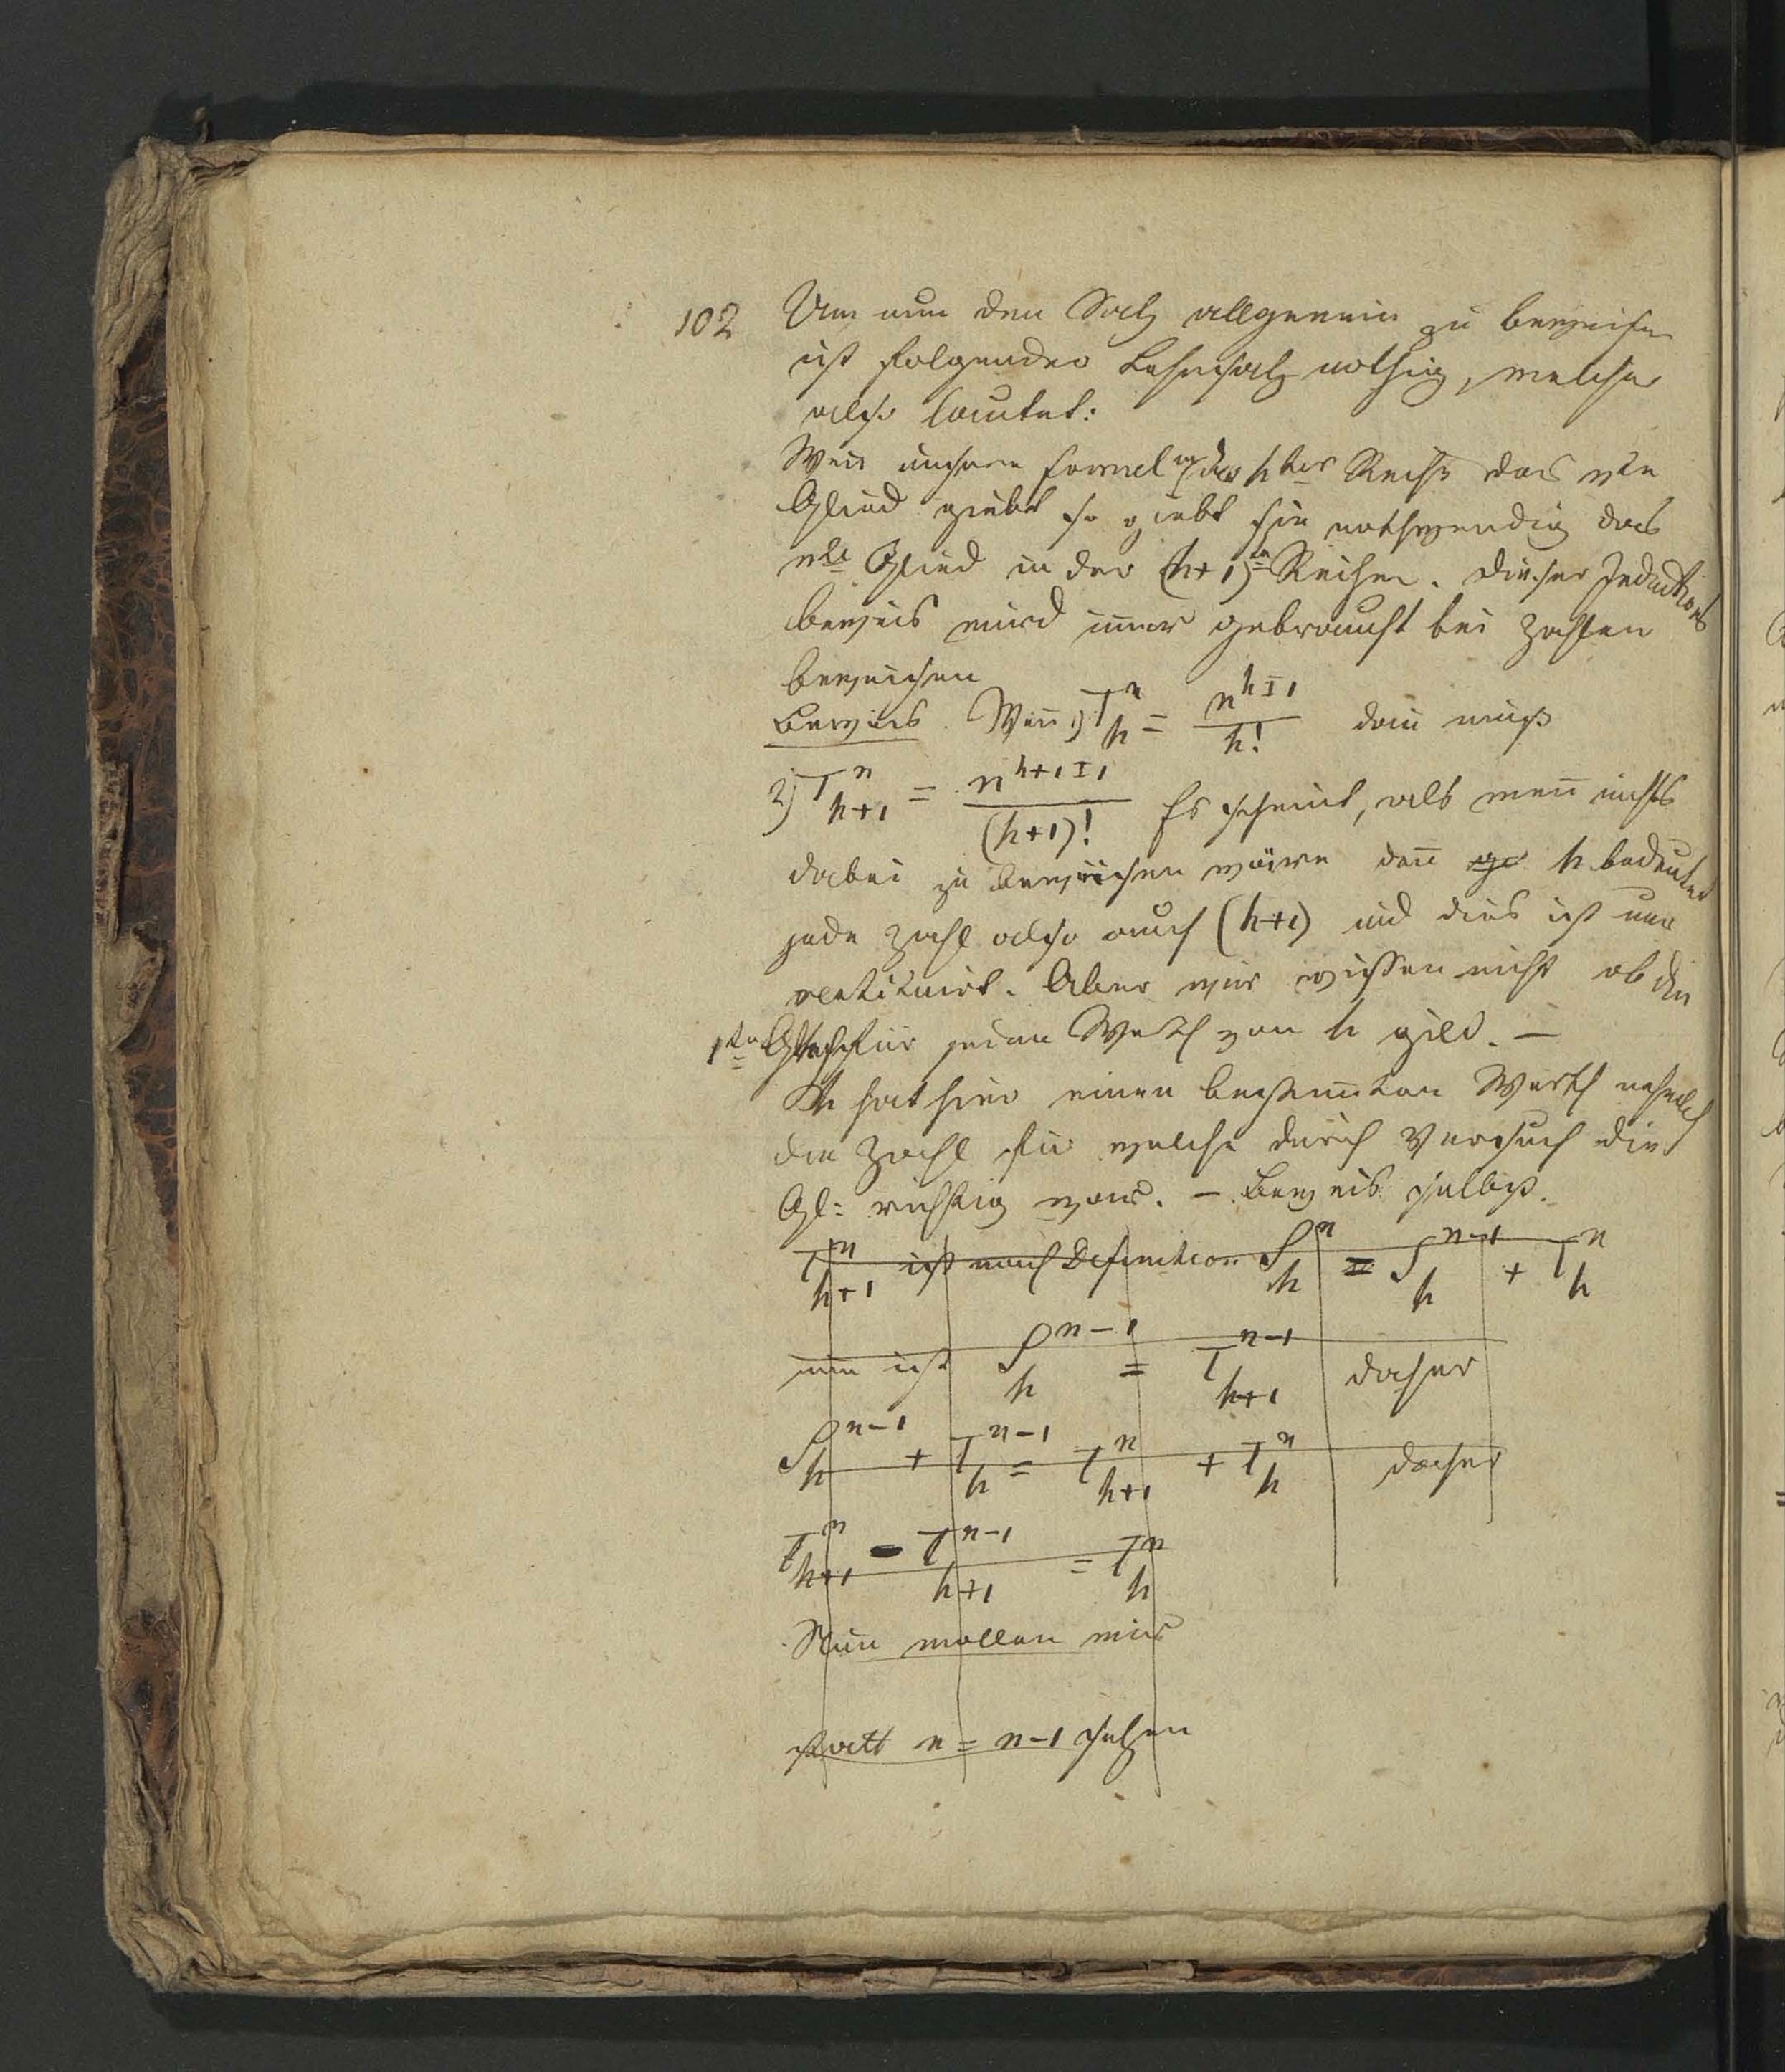 102
Um nun den Satz allgemein zu beweisen
ist folgender Lehnsatz nothig, welcher
also lautet:
Wen unsere Formel in der hter Reihe das nte
Glied giebt so giebt sie nothwendig das
nte Glied in der (h+1)ten Reihe. Dieser Inductions
beweis wird im̄er gebraucht bei Zahlen
beweisen
Beweis. Wen̄ 1) T^n_h = n^{h I 1} / h! dan̄ muß
2) T^n_{h+1} = n^{h+1 I 1} / (h+1)! Es scheint, als wen̄ nichts
dabei zu beweisen wäre den̄ h bedeutet
jede Zahl also auch (h+1) und dies ist nur
. Aber wir wissen nicht ob die
1te Gleich für jeden Werth von h gild. —
h hat hier einen bestim̄ten Werth nehmlich
die Zahl für welche durch Versuch die
Gl: richtig war. — Beweis selbst.
T^n_{h+1} ist nach Definition S^n_h = S^{n-1}_h + T^n_h
nun ist S^{n-1}_h = T^{n-1}_{h+1} daher
S^{n-1}_h + T^{n-1}_h = T^n_{h+1} + T^n_h daher
T^n_{h+1} - T^{n-1}_{h+1} = T^n_h
Nun wollen wir
statt n = n-1 setzen